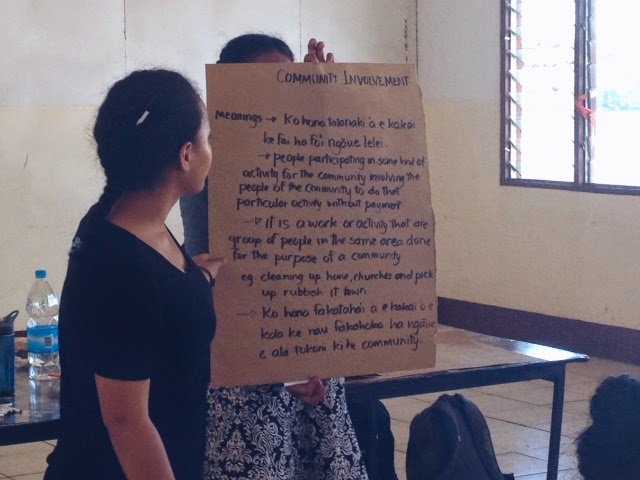 COMMUNITY INVOLVEMENT
Meanings → Ko hono talanaki 'a e kakai
ke fai ha fo'i ngāue lelei.
→ people participating in some kind of
activity for the community involving the
people of the community to do that
particular activity without payment
→ It is a work or activity that are
group of people in the same area done
for the purpose of a community
eg. cleaning up home, churches and pick
up rubbish it town
→ Ko hono fakataha'i 'a e kakai 'o e
kolo ke nau fakahoko ha ngāue
e ala tokoni ki he community.